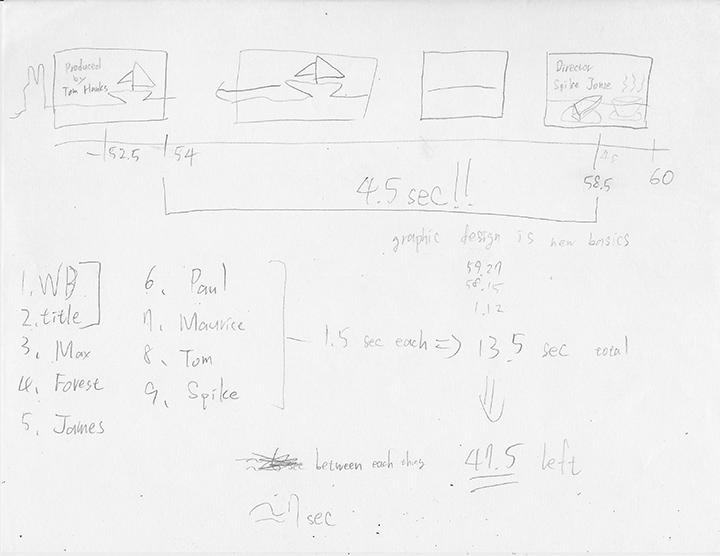 Produced
by
Tom Hanks
Director
Spike Jonze
52.5
54
58.5
60
4.5 sec!!
graphic design is new basics
59.27
58.15
1.12
1. WB
2. title
3. Max
4. Forest
5. James
6. Paul
7. Maurice
8. Tom
9. Spike
1.5 sec each => 13.5 sec total
between each thing
47.5 left
≈7 sec